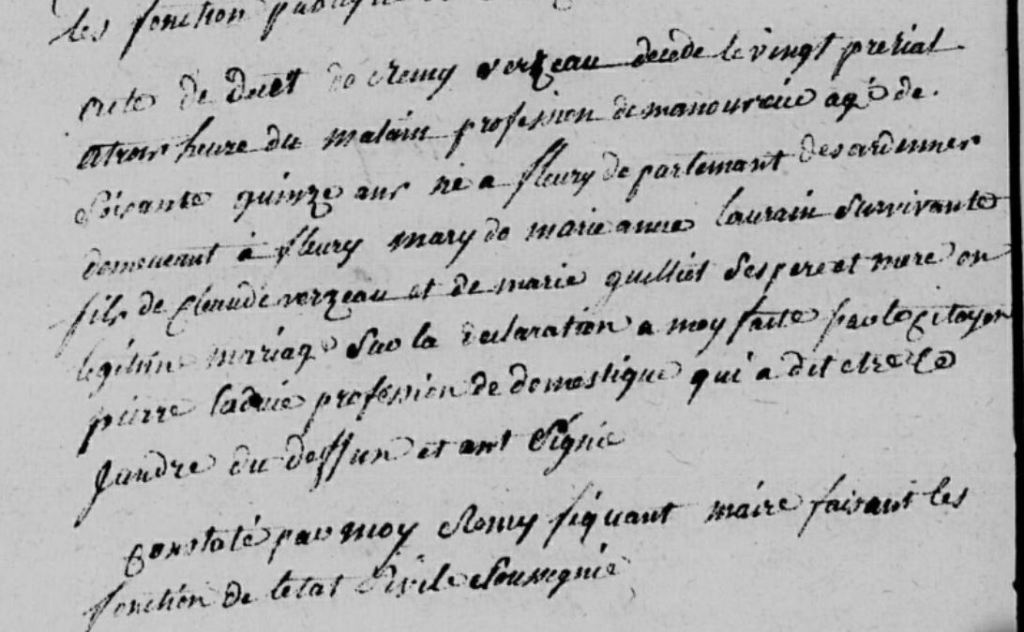 les fonction publique
acte de decet de Remy verzeau decede le vingt prerial
atrois heure du matain profession de manouvrie agé de
soisante quinze ans né a fleury departemant des ardennes
demeurant à fleury mary de marie anne laurain survivante
fils de Claude verzeau et de marie guilliet ses pere et mere en
legitime mariage sur la declaration a moy faite par le citoyen
pierre ladvie profession de domestique qui a dit etre le
jandre du deffun et ont signie
constaté par moy Remy fiquant maire faisant les
fonction de letat Civile soussignié